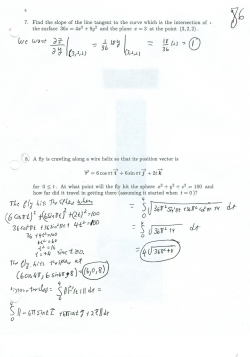 4
86
7. Find the slope of the line tangent to the curve which is the intersection of
the surface 36z = 4x² + 9y² and the plane x = 3 at the point (3, 2, 2).
We want ∂z/∂y |(3,2,2) = 1/36 18y |(3,2,2) = 18/36 (2) = 1
8. A fly is crawling along a wire helix so that its position vector is
r = 6 cos πt i + 6 sin πt j + 2t k
for 0 ≤ t. At what point will the fly hit the sphere x² + y² + z² = 100 and
how far did it travel in getting there (assuming it started when t = 0)?
The fly hits the sphere when
(6 cos πt)² + (6 sin πt)² + (2t)² = 100
36 cos²πt + 36 sin²πt + 4t² = 100
36 + 4t² = 100
4t² = 64
t² = 16
t = 4 since t ≥ 0.
The fly hits the sphere at
(6 cos 4π, 6 sin 4π, 8) = (6, 0, 8)
= ∫₀⁴ √(36π² sin²πt + 36π² cos²πt + 4) dt
= ∫₀⁴ √(36π² + 4) dt
= 4√(36π² + 4)